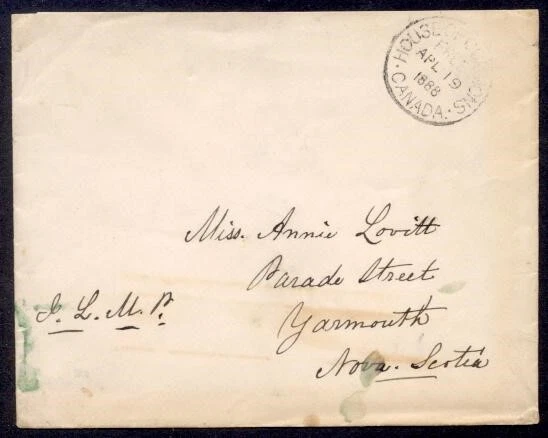 HOUSE OF COMMONS
FREE
APL 19
1888
CANADA.
Miss. Annie Lovitt
Parade Street
Yarmouth
Nova. Scotia
J. L. M. P.